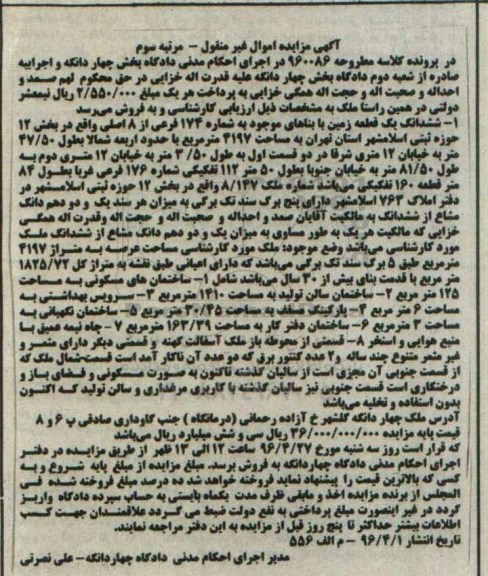 آگهی مزایده اموال غیر منقول – مرتبه سوم
در پرونده کلاسه مطروحه ۹۶۰۰۸۶ در اجرای احکام مدنی دادگاه بخش چهار دانگه و اجراییه
صادره از شعبه دوم دادگاه بخش چهار دانگه علیه قدرت اله خزایی در حق محکوم لهم صمد و
احداله و صحبت اله و حجت اله همگی خزایی به پرداخت هر یک مبلغ ۲/۵۵۰/۰۰۰ ریال نیمعشر
دولتی در همین راستا ملک به مشخصات ذیل ارزیابی کارشناسی و به فروش می‌رسد
۱– ششدانگ یک قطعه زمین با بناهای موجود به شماره ۱۷۴ فرعی از ۸ اصلی واقع در بخش ۱۲
حوزه ثبتی اسلامشهر استان تهران به مساحت ۴۱۹۷ مترمربع با حدود اربعه شمالا بطول ۴۷/۵۰
متر به خیابان ۱۲ متری شرقا در دو قسمت اول به طول ۳/۵۰ متر به خیابان ۱۲ متری دوم به
طول ۸۱/۵۰ متر به خیابان جنوبا بطول ۵۰ متر ۱۱۲ تفکیکی شماره ۱۷۶ فرعی غربا بطول ۸۴
متر قطعه ۱۶۰ تفکیکی می‌باشد شماره ملک ۸/۱۴۷ واقع در بخش ۱۲ حوزه ثبتی اسلامشهر در
دفتر املاک ۷۶۳ اسلامشهر دارای پنج برگ سند تک برگی به میزان هر سند یک و دو دهم دانگ
مشاع از ششدانگ به مالکیت آقایان صمد و احداله و صحبت اله و حجت اله وقدرت اله همگی
خزایی که مالکیت هر یک به طور مساوی به میزان یک و دو دهم دانگ مشاع از ششدانگ ملک
مورد کارشناسی می‌باشد وضع موجود: ملک مورد کارشناسی مساحت عرصه به متراژ ۴۱۹۷
مترمربع طبق ۵ برگ سند تک برگی می‌باشد که دارای اعیانی طبق نقشه به متراژ کل ۱۸۲۵/۷۲
متر مربع با قدمت بنای بیش از ۳۰ سال می‌باشد شامل ۱– ساختمان های مسکونی به مساحت
۱۲۵ متر مربع ۲– ساختمان سالن تولید به مساحت ۱۴۱۰ مترمربع ۳– سرویس بهداشتی به
مساحت ۶ متر مربع ۴– پارکینگ مسقف به مساحت ۳۰/۴۵ متر مربع ۵– ساختمان نگهبانی به
مساحت ۳ مترمربع ۶– ساختمان دفتر کار به مساحت ۱۶۳/۳۹ مترمربع ۷– چاه نیمه عمیق با
منبع هوایی و استخر ۸– قسمتی از محوطه باز ملک آسفالت کهنه و قسمتی دیگر دارای مثمر و
غیر مثمر متنوع چند ساله و۲ عدد کنتور برق که دو عدد آن ناکار آمد است قسمت‌شمال ملک که
از قسمت جنوبی آن مجزی است از سالیان گذشته تاکنون به صورت مسکونی و فضای باز و
درختکاری است قسمت جنوبی نیز سالیان گذشته با کاربری مرغداری و سالن تولید که اکنون
بدون استفاده و تخلیه می‌باشد
آدرس ملک چهار دانگه گلشهر خ آزاده رحمانی (درمانگاه) جنب گاوداری صادقی پ ۶ و ۸
قیمت پایه مزایده ۳۶/۰۰۰/۰۰۰/۰۰۰ ریال سی و شش میلیارد ریال می‌باشد
که قرار است روز سه شنبه مورخ ۹۶/۴/۲۷ ساعت ۱۲ الی ۱۳ ظهر از طریق مزایده در دفتر
اجرای احکام مدنی دادگاه چهاردانگه به فروش برسد. مبلغ مزایده از مبلغ پایه شروع و به
کسی که بالاترین قیمت را پیشنهاد نماید فروخته خواهد شد ده درصد مبلغ فروخته شده فی
المجلس از برنده مزایده اخذ و مابقی ظرف مدت یکماه بایستی به حساب سپرده دادگاه واریز
گردد در غیر اینصورت مبلغ پرداختی به نفع دولت ضبط می گردد علاقمندان جهت کسب
اطلاعات بیشتر حداکثر تا پنج روز قبل از مزایده به این دفتر مراجعه نمایند.
تاریخ انتشار ۹۶/۴/۱ – م الف ۵۵۶
مدیر اجرای احکام مدنی دادگاه چهاردانگه– علی نصرتی